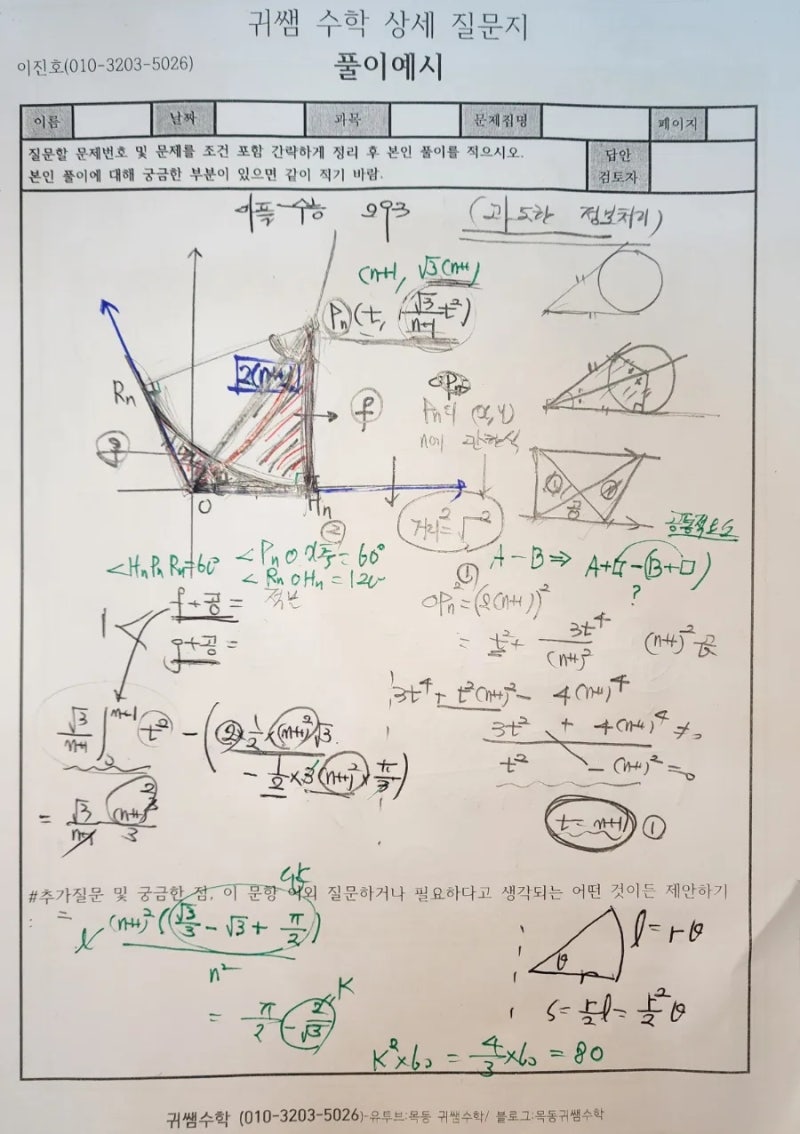 귀쌤 수학 상세 질문지
이진호(010-3203-5026)
풀이예시
이름 날짜 과목 문제집명 페이지
질문할 문제번호 및 문제를 조건 포함 간략하게 정리 후 본인 풀이를 적으시오.
본인 풀이에 대해 궁금한 부분이 있으면 같이 적기 바람.
답안
검토자
수능 (과도한 정보처리)
(n+1, √3(n+1))
Pn (t, √3/(n+1) t²)
Rn
2(n+1)
f
Pn의 (x,y)
n에 관한식
g
O Hn
거리² = √ ²
공
공통적요소
②
<HnPnRn=60° <PnOx축=60°
<RnOHn=120°
A-B ⇒ A+□-(B+□)
?
f+공= 적분
g+공=
①
OPn²=(2(n+1))²
= t²+ 3t⁴/(n+1)² (n+1)²
3t⁴+t²(n+1)²-4(n+1)⁴
3t² + 4(n+1)²≠0
t² -(n+1)²=0
t=n+1 ①
√3/(n+1) ∫₀ⁿ⁺¹ t² - (2×1/2×(n+1)²√3
- 1/2×3(n+1)²×π/3)
= √3/(n+1) (n+1)³/3
#추가질문 및 궁금한 점, 이 문항 이외 질문하거나 필요하다고 생각되는 어떤 것이든 제안하기
= (n+1)²(√3/3-√3+π/2)
n²
= π/2 - 2/√3 K
θ r l=rθ
S=r/2 l=r²/2 θ
K²×60 = 4/3×60 = 80
귀쌤수학 (010-3203-5026)-유투브:목동 귀쌤수학/ 블로그:목동귀쌤수학